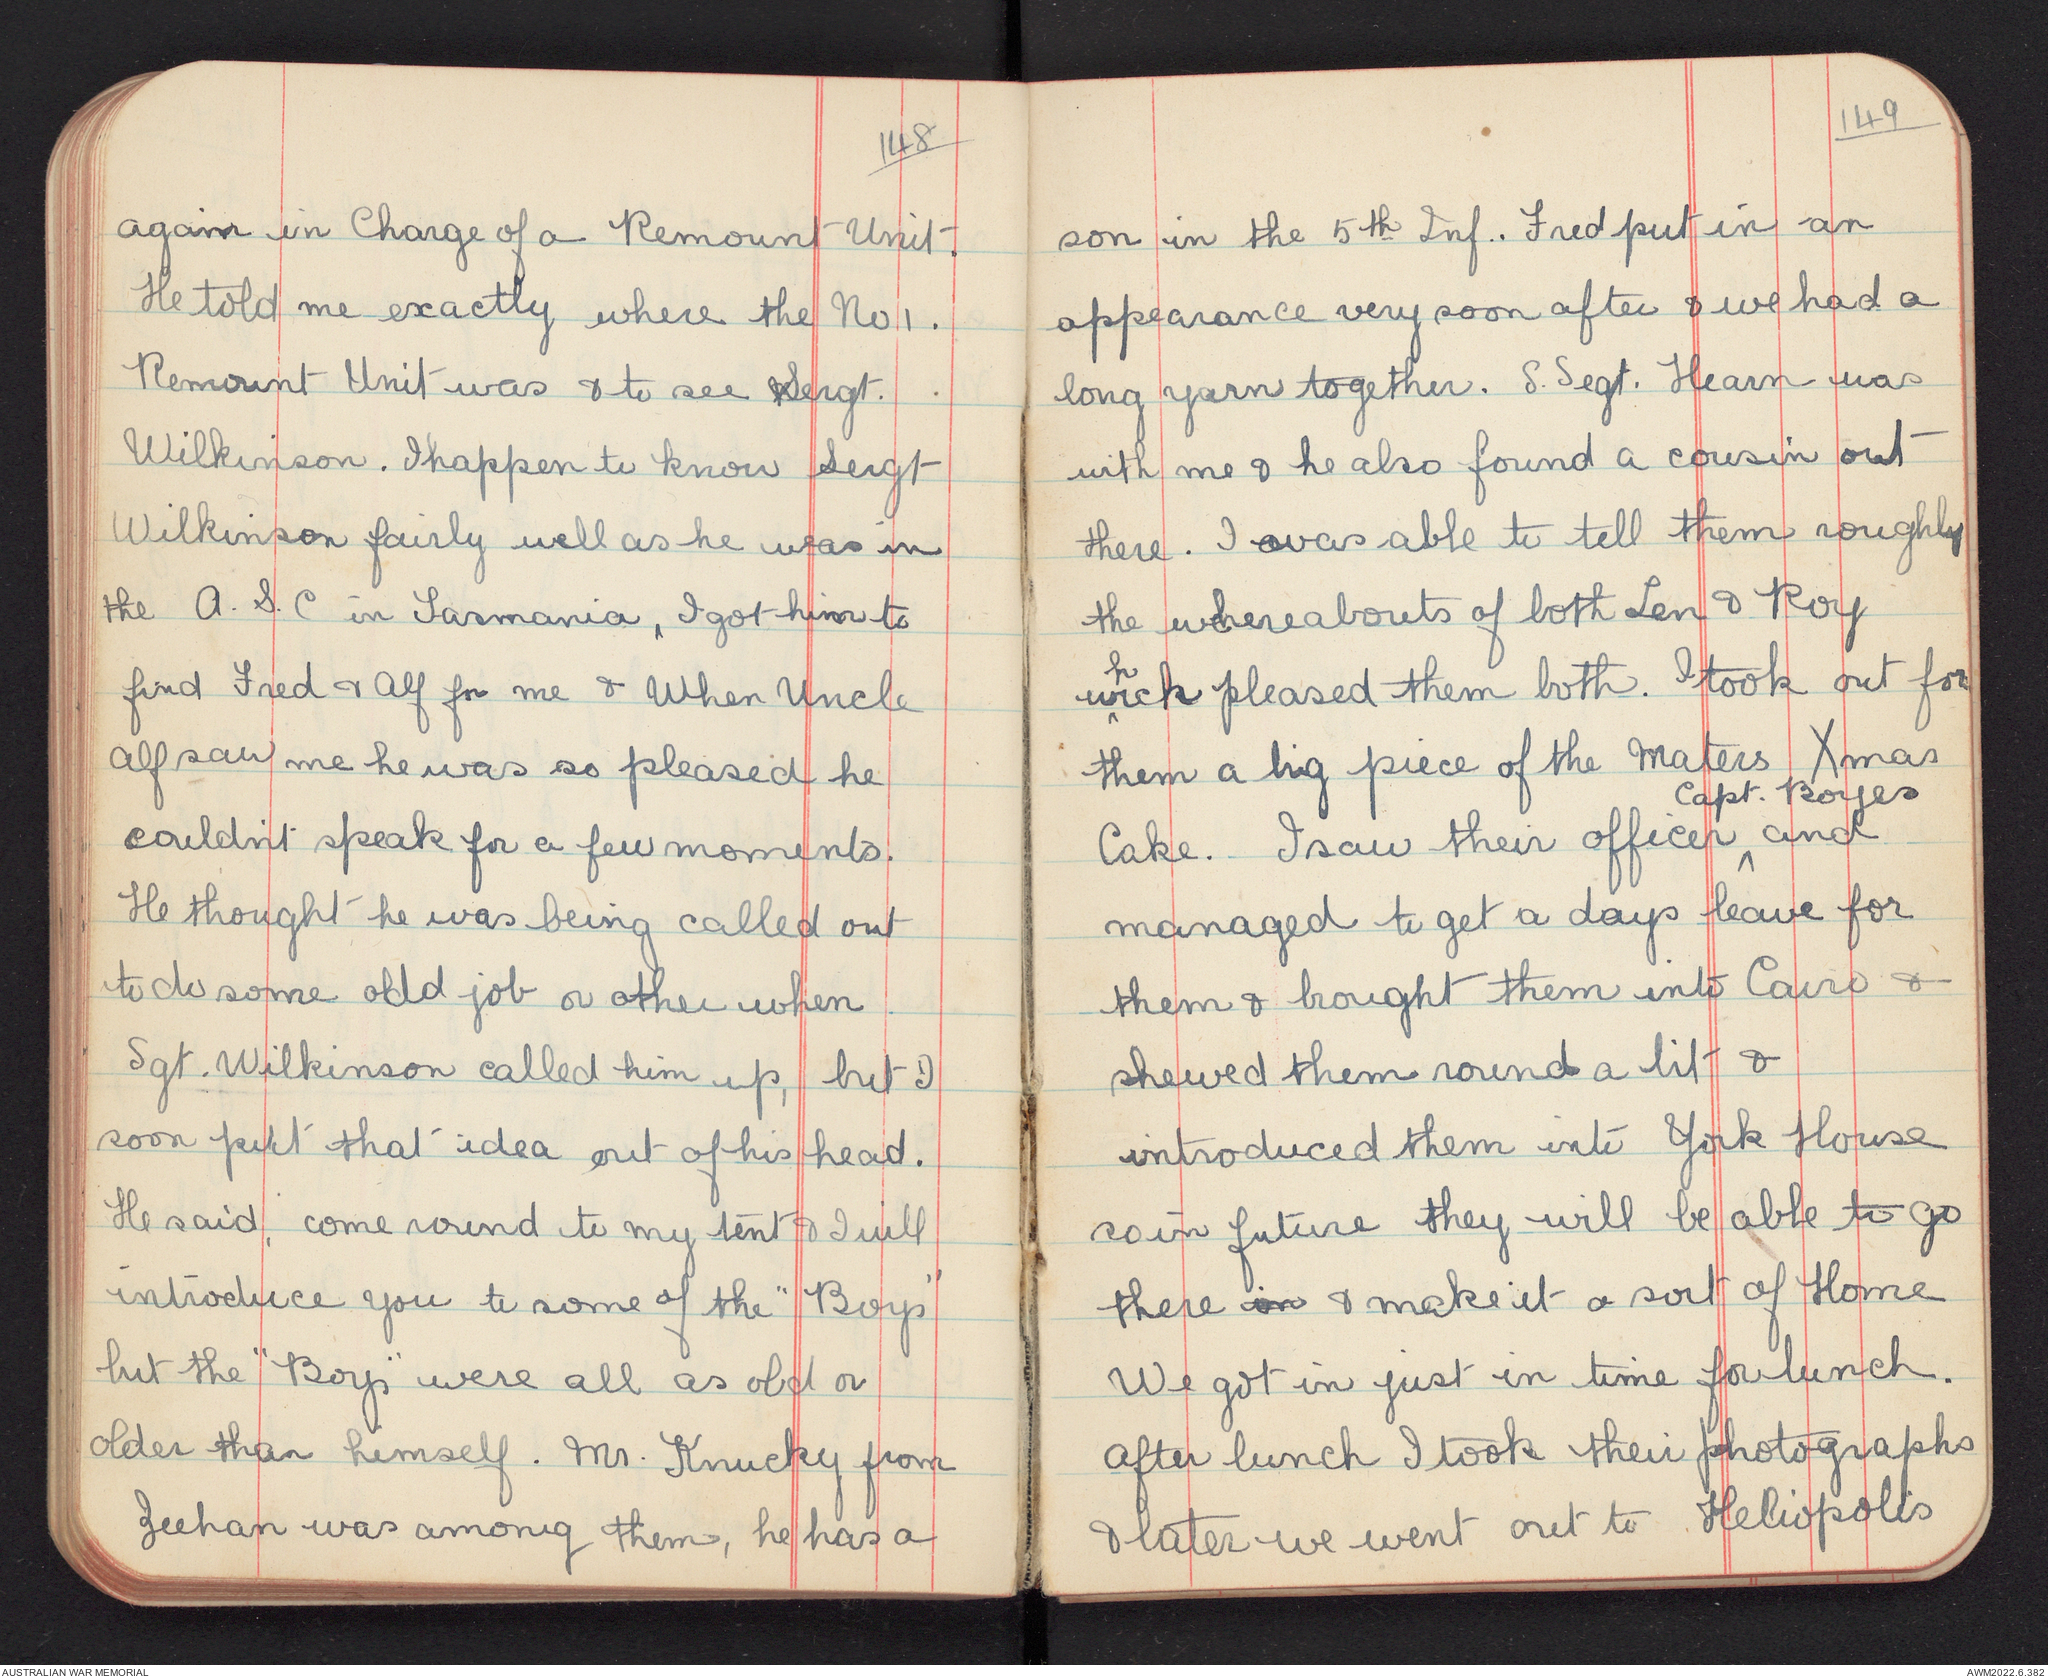 148
again in Charge of a Remount Unit.
He told me exactly where the No 1.
Remount Unit was & to see Sergt.
Wilkinson. I happen to know Sergt
Wilkinson fairly well as he was in
the A. S. C in Tasmania, I got him to
find Fred & Alf for me & When Uncle
Alf saw me he was so pleased he
couldn't speak for a few moments.
He thought he was being called out
to do some odd job or other when
Sgt. Wilkinson called him up, but I
soon put that idea out of his head.
He said, come round to my tent & I will
introduce you to some of the "Boys"
but the "Boys" were all as old or
older than himself. Mr. Knucky from
Zeehan was among them, he has a
149
son in the 5th Inf.. Fred put in an
appearance very soon after & we had a
long yarn together. S. Segt. Hearn was
with me & he also found a cousin out
there. I was able to tell them roughly
the whereabouts of both Len & Roy
which pleased them both. I took out for
them a big piece of the Maters Xmas
Cake. I saw their officer Capt. Boyes and
managed to get a days leave for
them & brought them into Cairo &
shewed them round a bit &
introduced them into York House
so in future they will be able to go
there in & make it a sort of Home
We got in just in time for lunch.
After lunch I took their photographs
& later we went out to Heliopolis
AUSTRALIAN WAR MEMORIAL
AWM2022.6.382